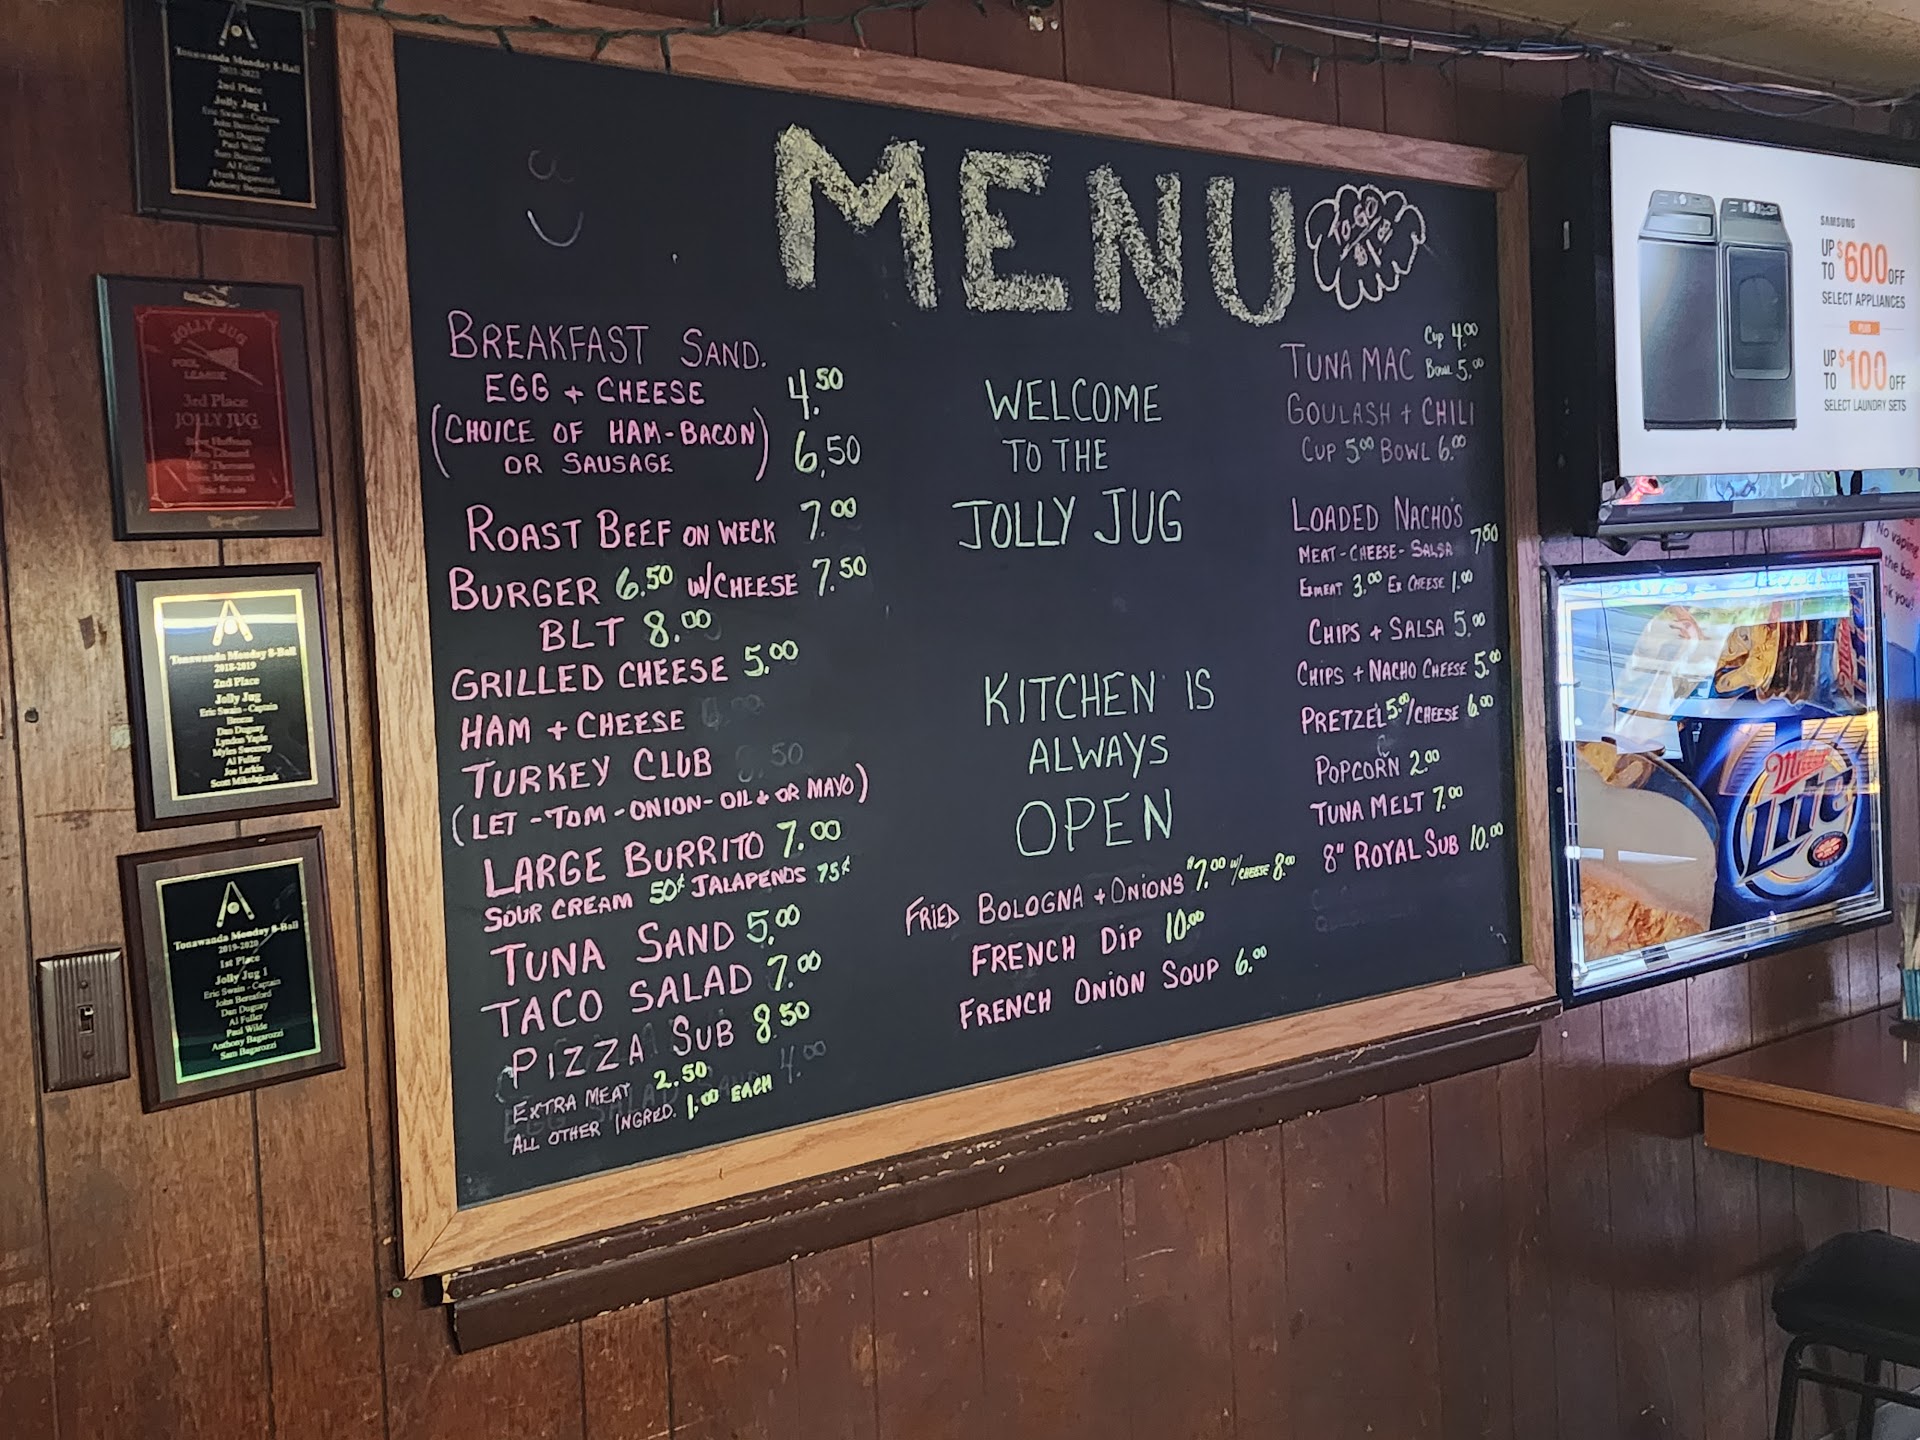 Tonawanda Monday 8-Ball
2nd Place
Jolly Jug 1
Eric Swain - Captain
Dan Duguay
Paul Wilde
Sam Bagarozzi
Al Fuller
Anthony Bagarozzi
JOLLY JUG
POOL
LEAGUE
3rd Place
JOLLY JUG
Eric Swain
Tonawanda Monday 8-Ball
2018-2019
2nd Place
Jolly Jug
Eric Swain - Captain
Dan Duguay
Lyndon Yaple
Myles Sweeney
Al Fuller
Joe Larkin
Scott Mikolajczak
Tonawanda Monday 8-Ball
2019-2020
1st Place
Jolly Jug 1
Eric Swain - Captain
John Beresford
Dan Duguay
Al Fuller
Paul Wilde
Anthony Bagarozzi
Sam Bagarozzi
MENU
TO-GO
$1.00
BREAKFAST SAND.
EGG + CHEESE 4.50
(CHOICE OF HAM-BACON)
OR SAUSAGE 6.50
ROAST BEEF ON WECK 7.00
BURGER 6.50 W/CHEESE 7.50
BLT 8.00
GRILLED CHEESE 5.00
HAM + CHEESE
TURKEY CLUB
(LET-TOM-ONION-OIL & OR MAYO)
LARGE BURRITO 7.00
SOUR CREAM 50¢ JALAPENOS 75¢
TUNA SAND 5.00
TACO SALAD 7.00
PIZZA SUB 8.50
EXTRA MEAT 2.50
ALL OTHER INGRED. 1.00 EACH
WELCOME
TO THE
JOLLY JUG
KITCHEN IS
ALWAYS
OPEN
FRIED BOLOGNA + ONIONS $7.00 W/CHEESE 8.00
FRENCH DIP 10.00
FRENCH ONION SOUP 6.00
TUNA MAC Cup 4.00
BOWL 5.00
GOULASH + CHILI
CUP 5.00 BOWL 6.00
LOADED NACHO'S
MEAT-CHEESE-SALSA 7.50
EXMEAT 3.00 EX CHEESE 1.00
CHIPS + SALSA 5.00
CHIPS + NACHO CHEESE 5.00
PRETZEL 5.00/CHEESE 6.00
POPCORN 2.00
TUNA MELT 7.00
8" ROYAL SUB 10.00
SAMSUNG
UP TO $600 OFF
SELECT APPLIANCES
PLUS
UP TO $100 OFF
SELECT LAUNDRY SETS
No vaping
the bar
Miller
Lite